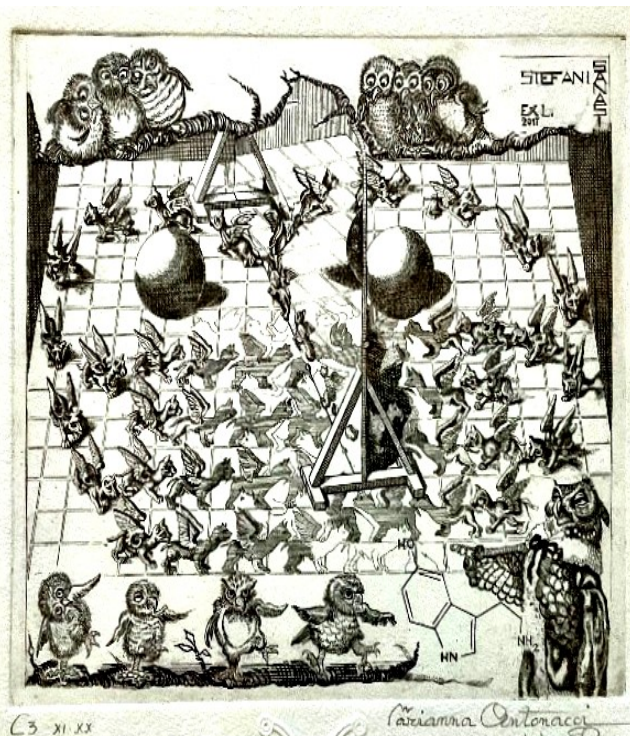 STEFANI
SANASI
EX L.
2017
HO
NH₂
HN
C3 XI-XX
Marianna Antonacci